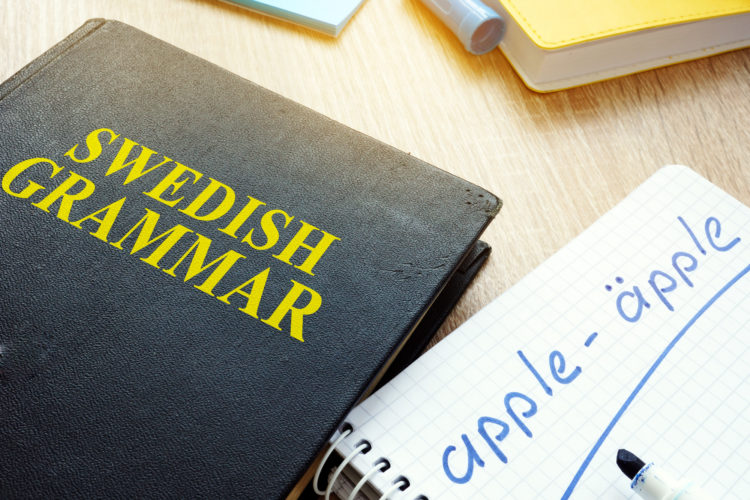 SWEDISH
GRAMMAR
apple - äpple